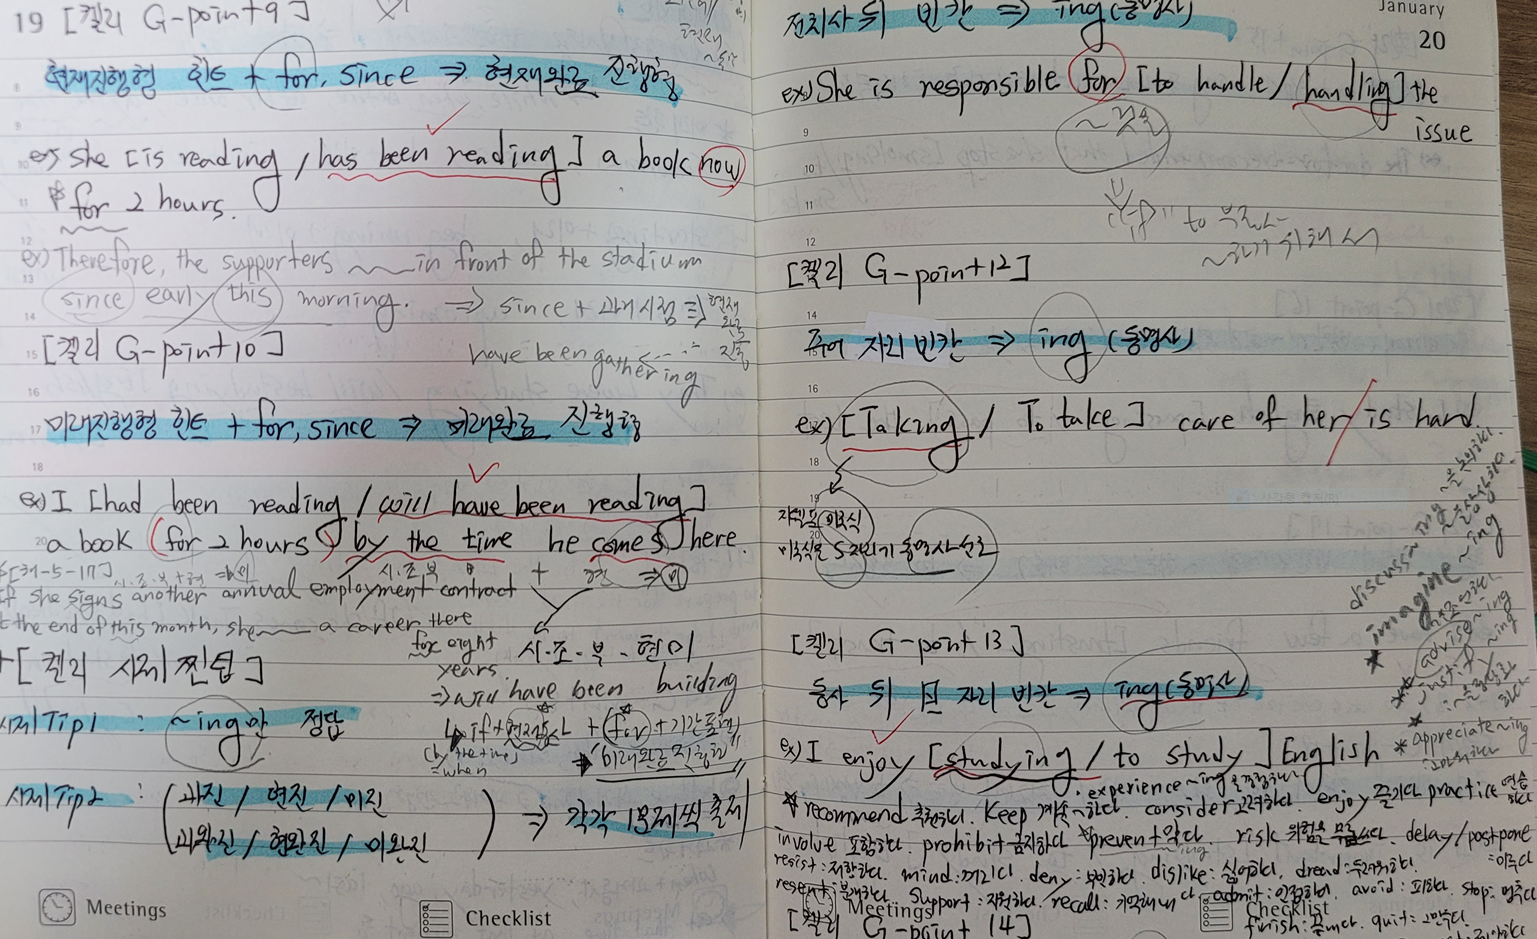 19 [켈리 G-point 9]
현재진행형 힌트 + for, since ⇒ 현재완료 진행형
ex) She [is reading / has been reading] a book now
for 2 hours.
ex) Therefore, the supporters ~~ in front of the stadium
since early this morning. ⇒ since + 과거시점 ⇒ 현재
완료
진행
have been gathering
[켈리 G-point 10]
미래진행형 힌트 + for, since ⇒ 미래완료 진행형
ex) I [had been reading / will have been reading]
a book (for 2 hours) by the time he comes here.
시·조·부 + 현 ⇒ 미
If she signs another annual employment contract
the end of this month, she ~~ a career there
for eight
years.
시·조·부·현미
⇒ will have been building
if + 현재동사 + for + 기간표현
(by the time,
=when
"미래완료진행형"
[켈리 시제 찐팁]
시제 Tip1 : ~ing만 정답
시제 Tip2 : (과진 / 현진 / 미진
과완진 / 현완진 / 미완진) ⇒ 각각 1문제씩 출제
Meetings
Checklist
January
20
전치사 뒤 빈칸 ⇒ ing (동명사)
ex) She is responsible for [to handle / handling] the
issue
to 부정사
~하기 위해서
[켈리 G-point 12]
주어 자리 빈칸 ⇒ ing (동명사)
ex) [Taking / To take] care of her / is hard.
지텔프 미국식
미국식은 동명사 선호
[켈리 G-point 13]
동사 뒤 목 자리 빈칸 ⇒ ing (동명사)
ex) I enjoy [studying / to study] English
discuss ing ~을 논의하다.
* imagine ~ing
advise ~ing
justify ~ing
* Appreciate ~ing
· experience ~ing
* recommend 추천하다. keep 계속~하다. consider 고려하다. enjoy 즐기다 practice 연습
하다
involve 포함하다. prohibit 금지하다 *prevent 막다. risk 위험을 무릅쓰다. delay/postpone
:미루다
resist: 저항하다. mind: 꺼리다. deny: 부인하다. dislike: 싫어하다, dread: 두려워하다.
resent: 분개하다. support: 지원하다. recall: 기억해내다 admit: 인정하다. avoid: 피하다. stop: 멈추다
finish: 끝내다. quit: 그만두다
[켈리 G-point 14]
Meetings
Checklist